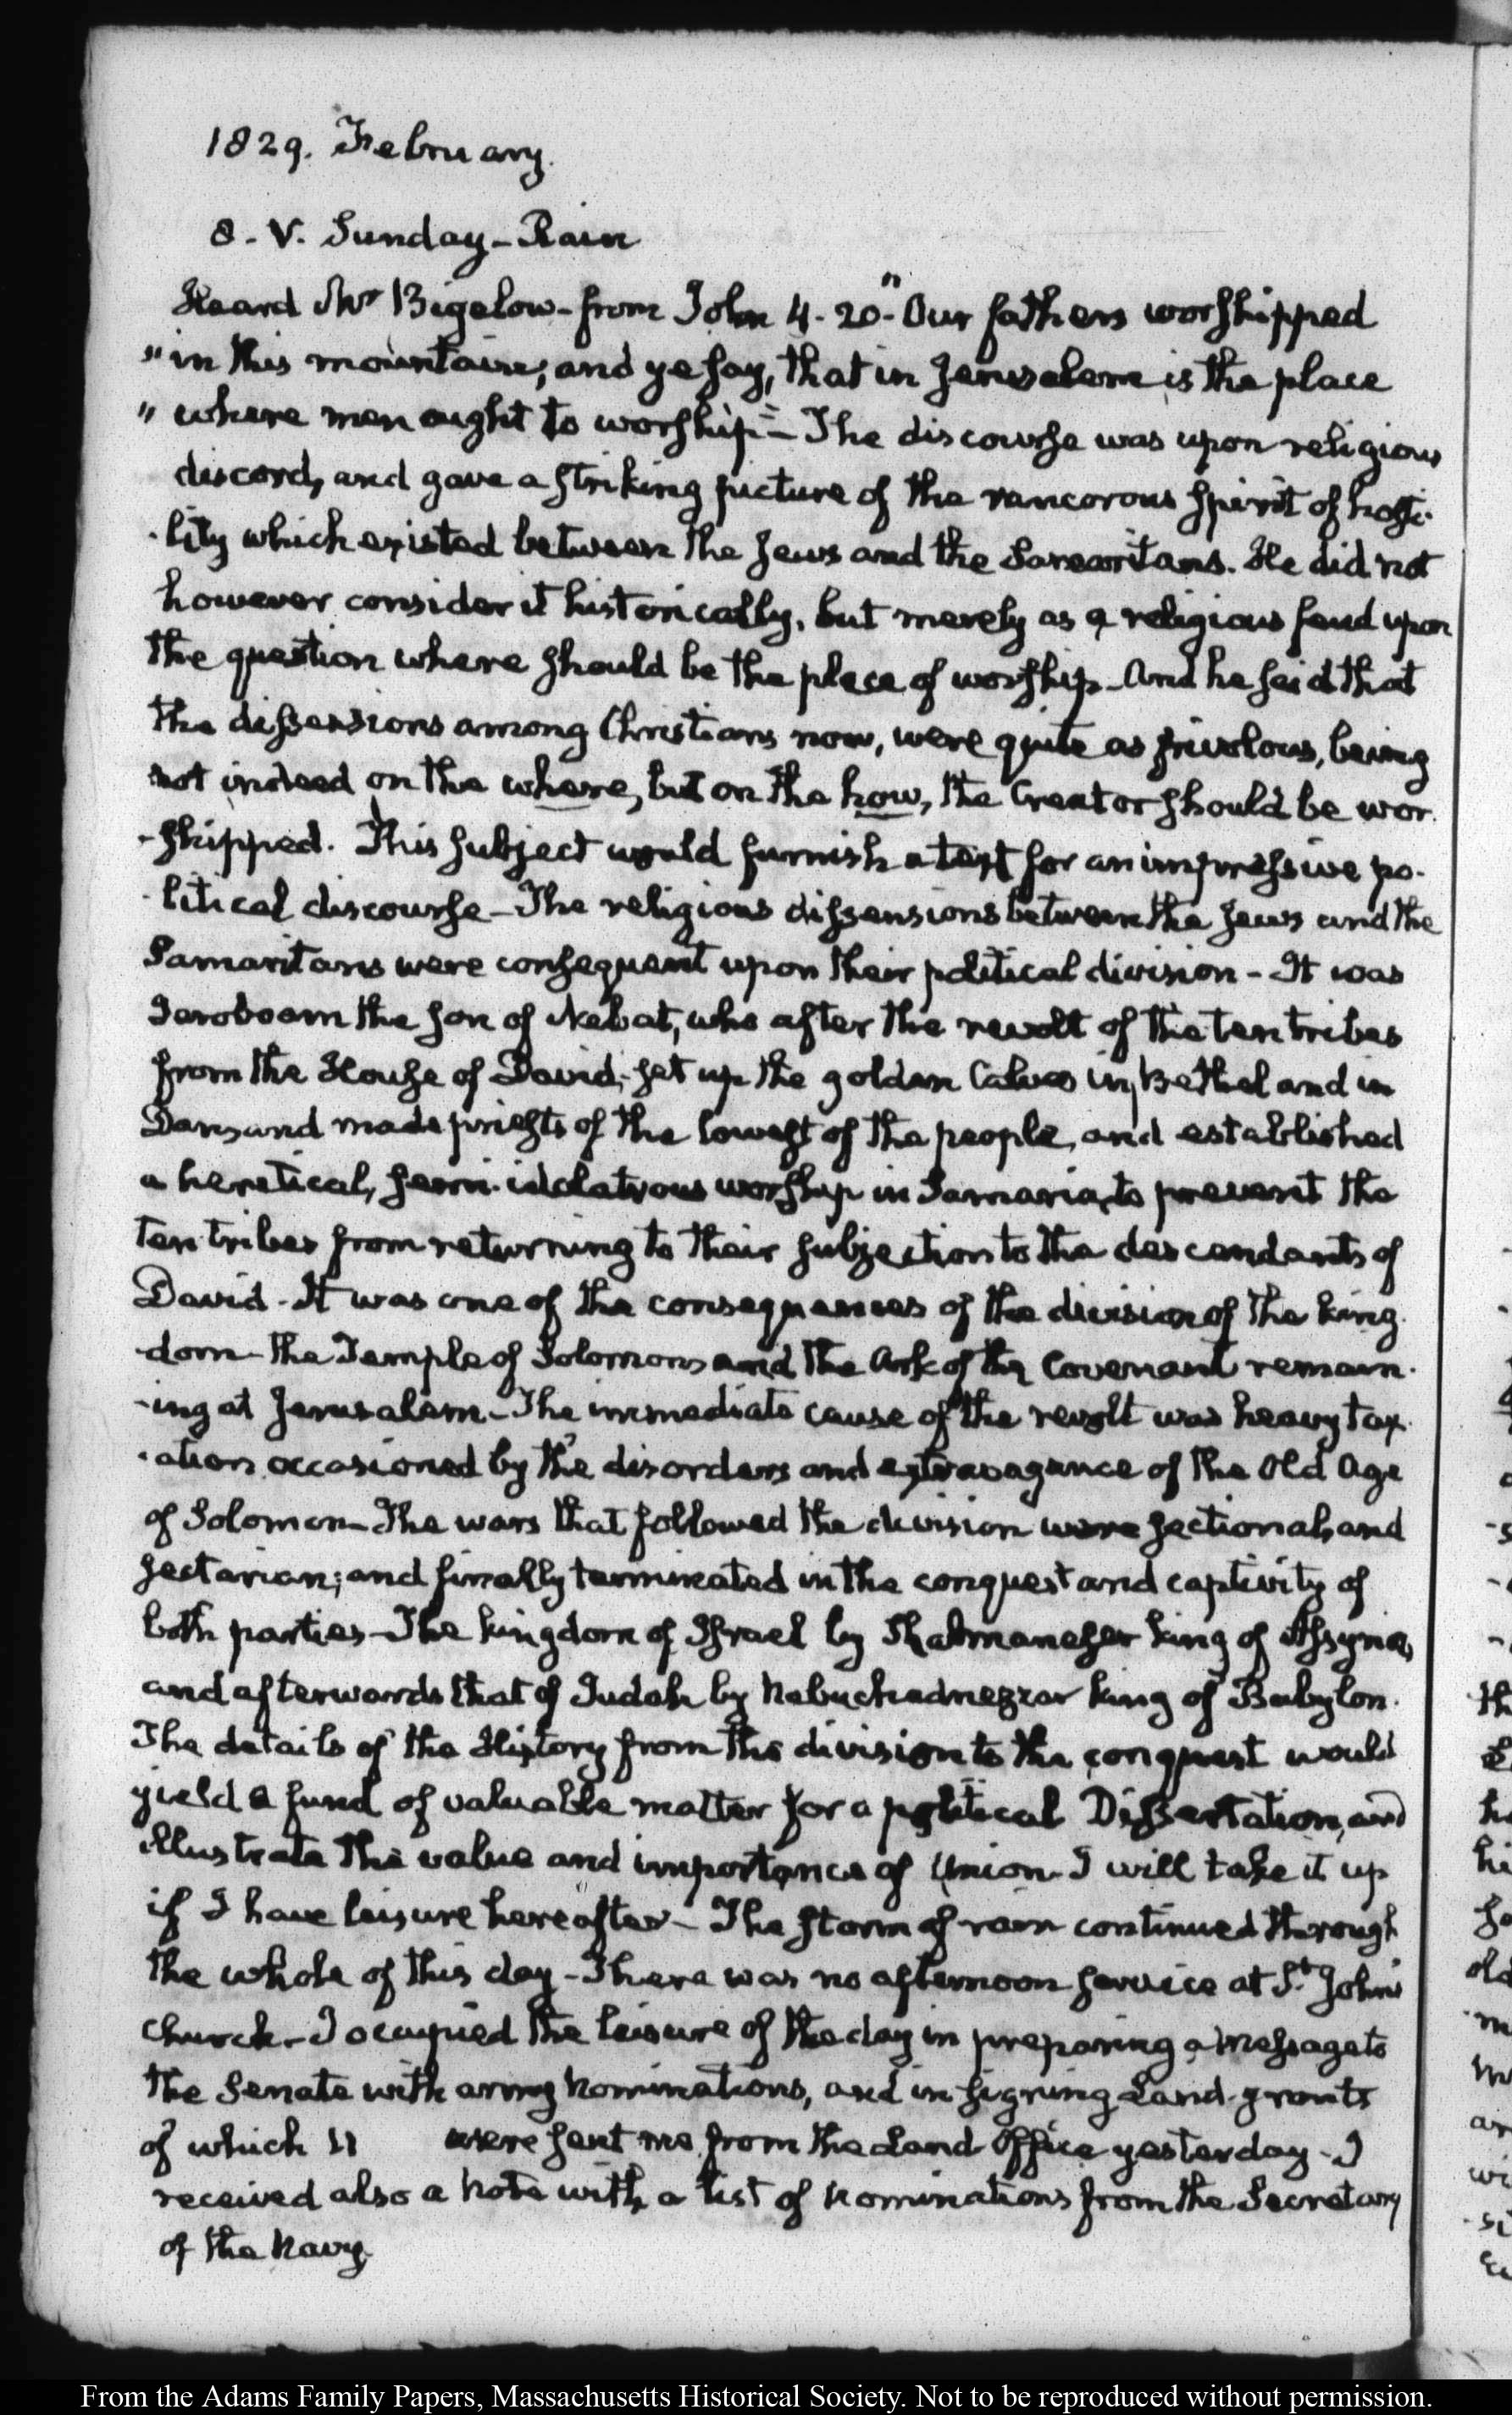 1829. February.
8. V. Sunday – Rain
Heard Mr Bigelow – from John 4. 20 – "Our fathers worshipped
"in this mountain; and ye say, that in Jerusalem is the place
"where men ought to worship" – The discourse was upon religious
discord, and gave a striking picture of the rancorous spirit of hosti-
-lity which existed between the Jews and the Samaritans. He did not
however consider it historically, but merely as a religious feud upon
the question where should be the place of worship – And he said that
the dissensions among Christians now, were quite as frivolous, being
not indeed on the where, but on the how, the Creator should be wor-
-shipped. This subject would furnish a text for an impressive po-
-litical discourse – The religious dissensions between the Jews and the
Samaritans were consequent upon their political division – It was
Jeroboam the son of Nebat, who after the revolt of the ten tribes
from the House of David, set up the golden Calves in Bethel and in
Dan, and made priests of the lowest of the people, and established
a heretical, semi-idolatrous worship in Samaria, to prevent the
ten tribes from returning to their subjection to the descendants of
David – It was one of the consequences of the division of the king-
-dom – the Temple of Solomon, and the Ark of the Covenant remain-
-ing at Jerusalem – The immediate cause of the revolt was heavy tax-
-ation, occasioned by the disorders and extravagance of the Old Age
of Solomon – The wars that followed the division were sectional, and
sectarian; and finally terminated in the conquest and captivity of
both parties – The kingdom of Israel by Shalmaneser king of Assyria,
and afterwards that of Judah by Nebuchadnezzar king of Babylon.
The details of the History from the division to the conquest would
yield a fund of valuable matter for a political Dissertation, and
illustrate the value and importance of Union – I will take it up
if I have leisure hereafter – The storm of rain continued through
the whole of this day – There was no afternoon service at St. John's
church – I occupied the leisure of the day in preparing a Message to
the Senate with army Nominations, and in signing Land-grants
of which 11 were sent me from the Land Office yesterday – I
received also a Note with a list of Nominations from the Secretary
of the Navy.
From the Adams Family Papers, Massachusetts Historical Society. Not to be reproduced without permission.